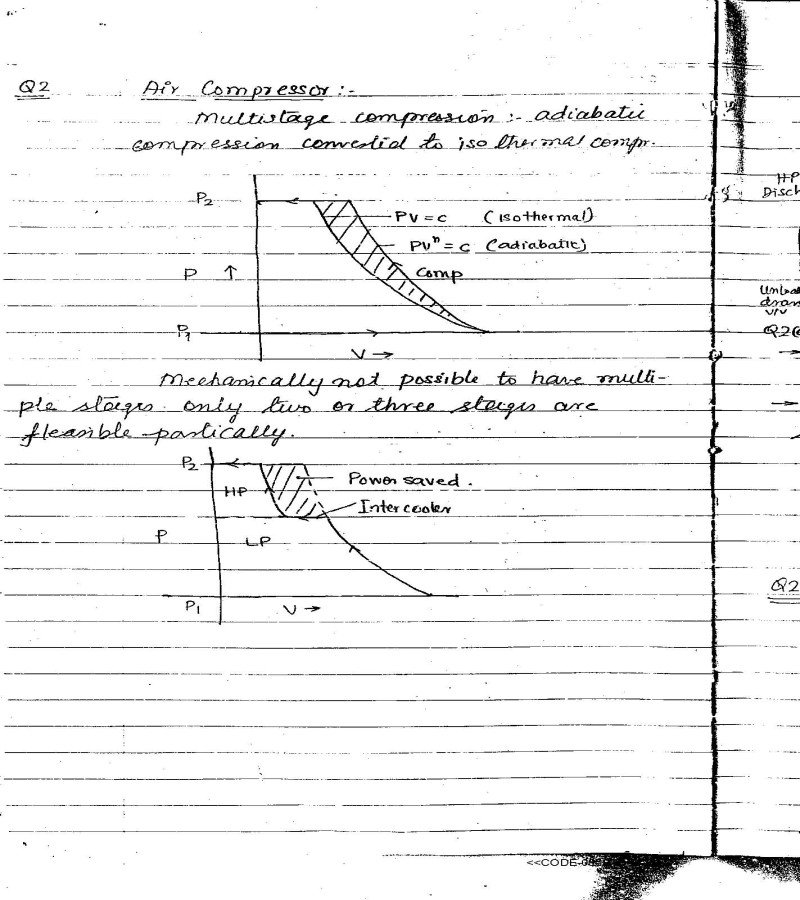 Q2 Air Compressor :-
Multistage compression :- adiabatic
compression converted to iso thermal compr.
P2
PV = C (isothermal)
PVⁿ = C (adiabatic)
Comp
P ↑
P1
V →
Mechanically not possible to have multi-
ple stages. only two or three stages are
fleasible partically.
P2
Power saved.
HP
Intercooler
P
LP
P1
V →
HP
Disch
V/V
Q2
→
→
Q2
<<CODE-